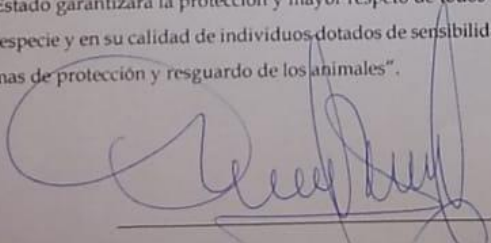 Estado garantizará la protección y mayor respeto de todos
especie y en su calidad de individuos dotados de sensibilid
mas de protección y resguardo de los animales".